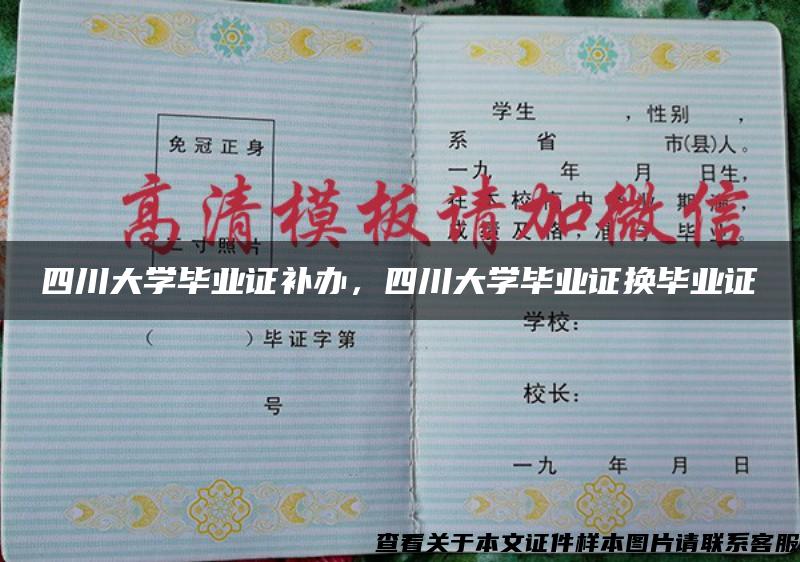 学生 ，性别 ，
免冠正身
系 省 市(县)人。
一九 年 月 日生，
高清模板请加微信
二寸照片
四川大学毕业证补办，四川大学毕业证换毕业证
学校：
（ ）毕证字第
校长：
号
一九 年 月 日
查看关于本文证件样本图片请联系客服